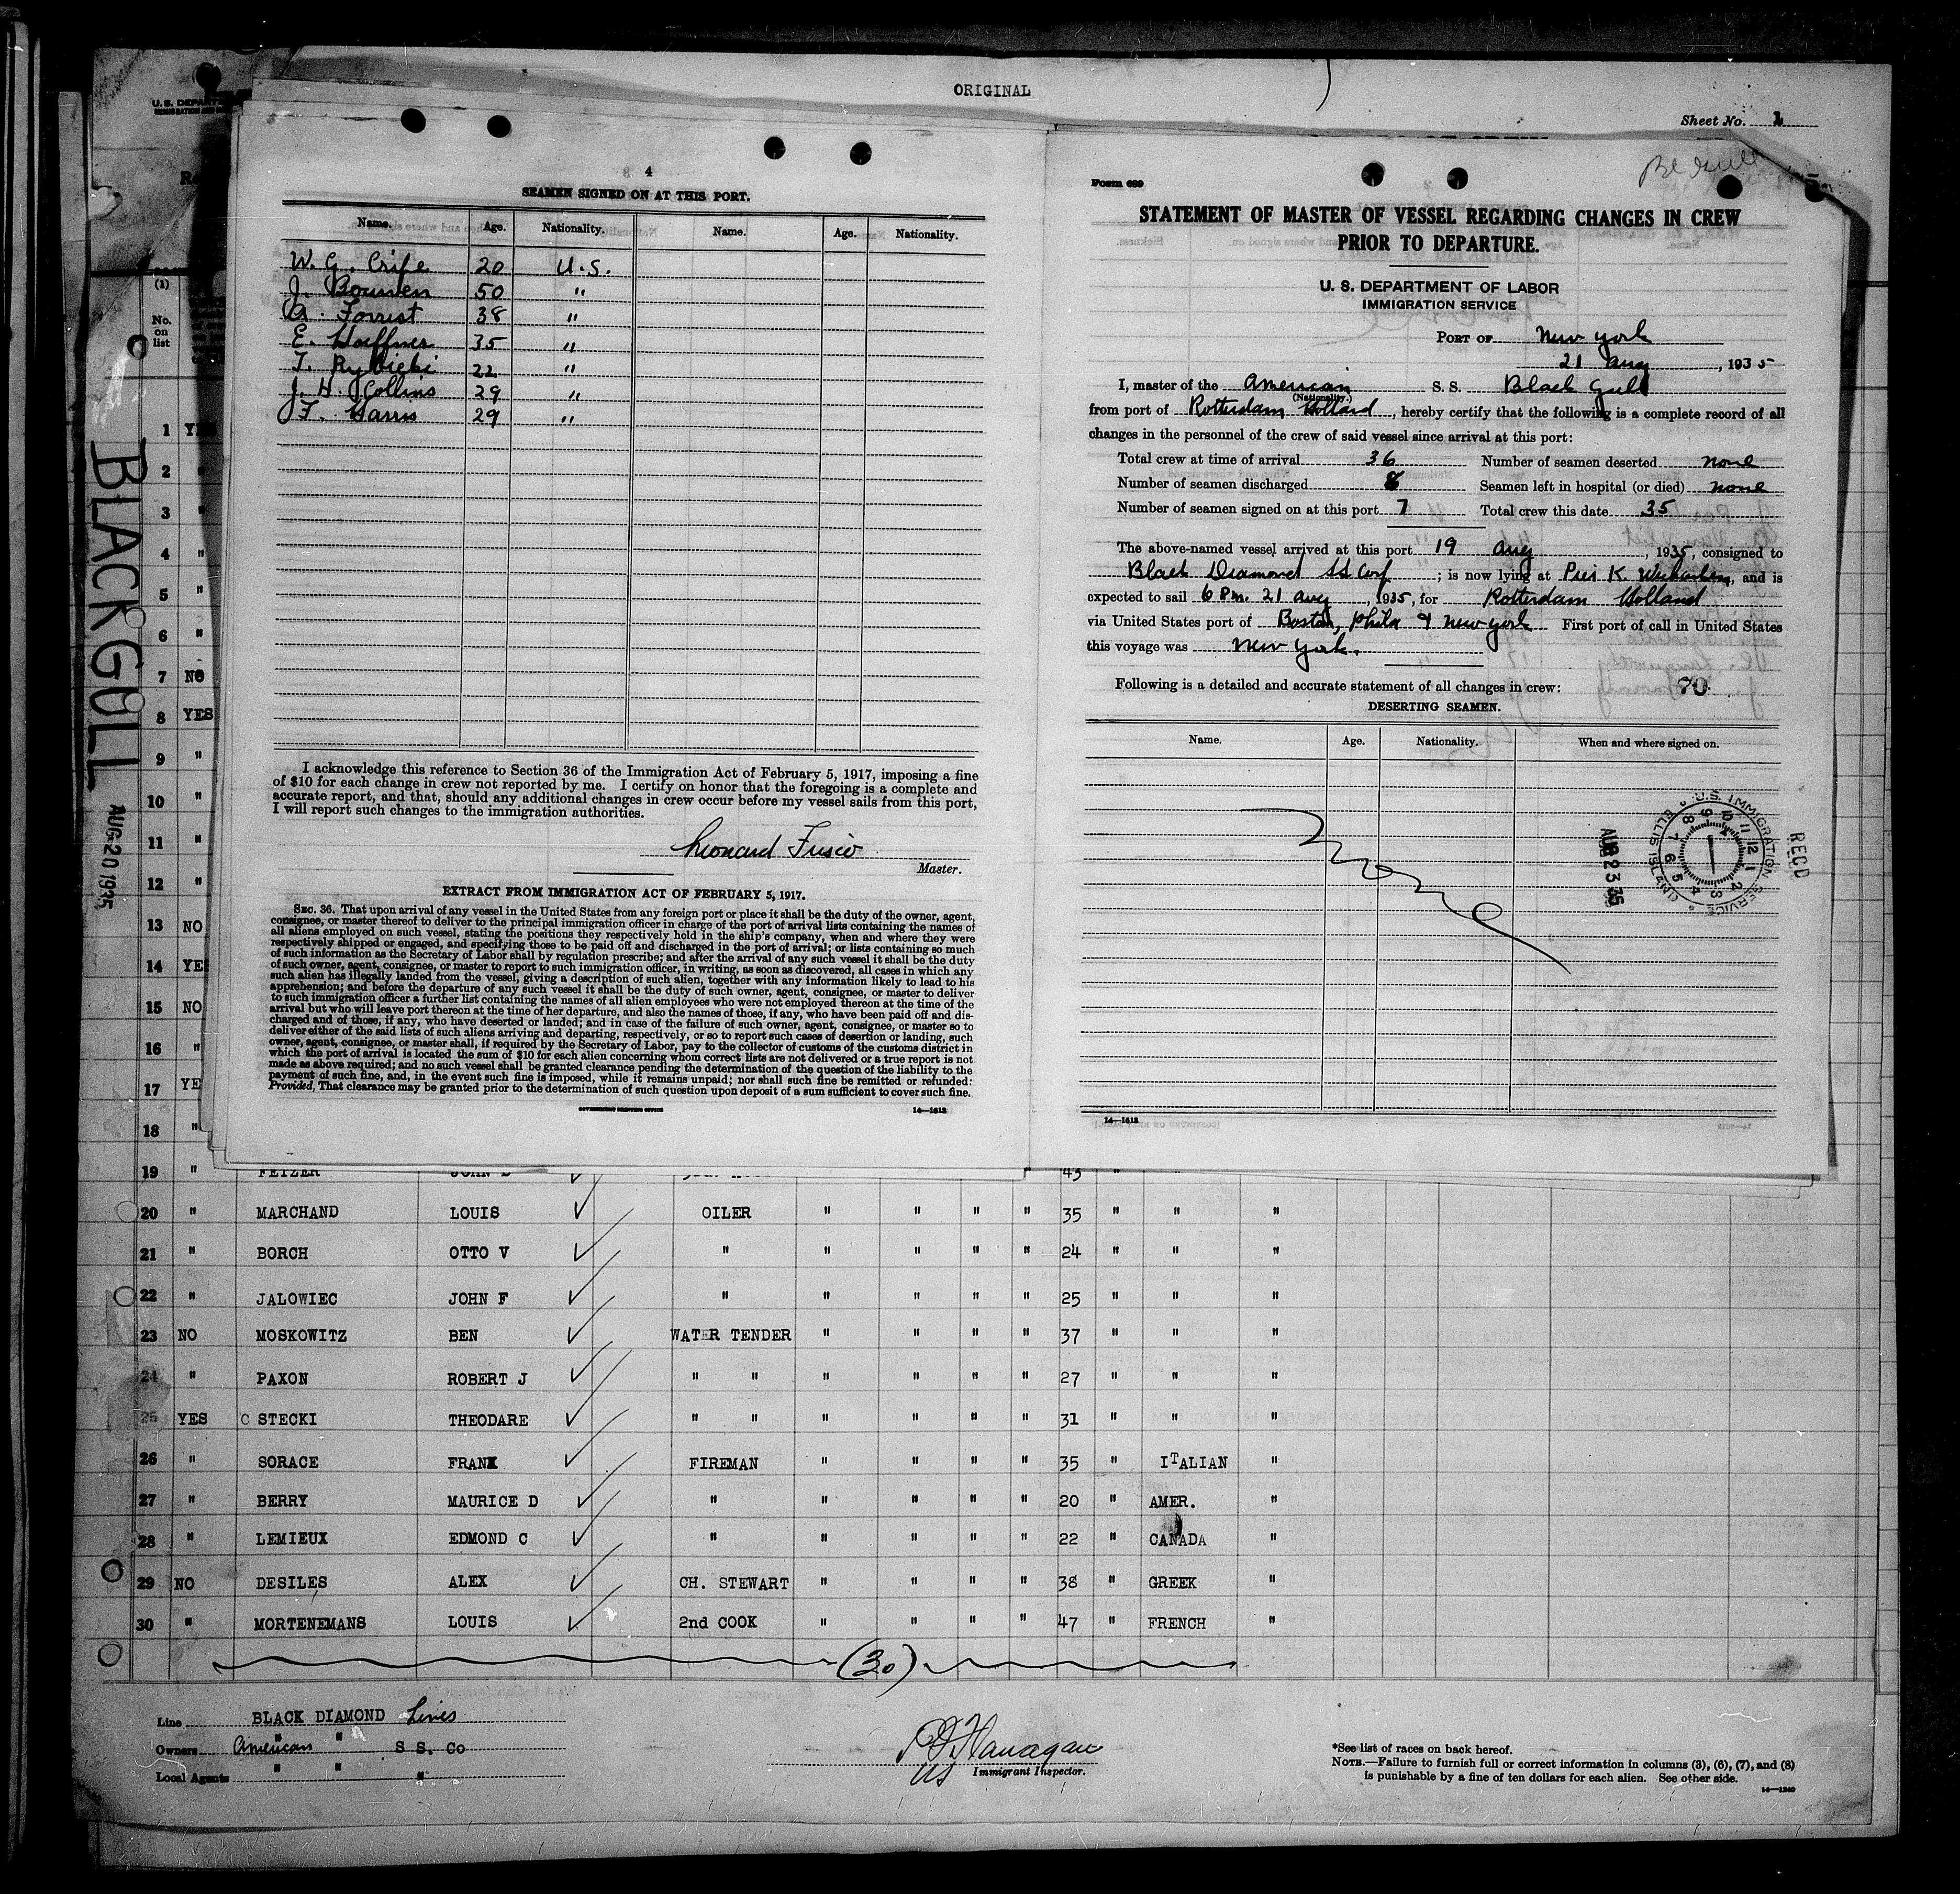 ORIGINAL
Sheet No. 1
U. S. DEPART
BLACK GULL
AUG 20 1935
4
SEAMEN SIGNED ON AT THIS PORT.
Name. Age. Nationality. Name. Age. Nationality.
W. G. Crife 20 U.S.
J. Bounen 50 "
A. Forrist 38 "
E. Haeffner 35 "
T. Rybicki 22 "
J. H. Collins 29 "
F. Harris 29 "
I acknowledge this reference to Section 36 of the Immigration Act of February 5, 1917, imposing a fine
of $10 for each change in crew not reported by me. I certify on honor that the foregoing is a complete and
accurate report, and that, should any additional changes in crew occur before my vessel sails from this port,
I will report such changes to the immigration authorities.
Leonard Fusco
Master.
EXTRACT FROM IMMIGRATION ACT OF FEBRUARY 5, 1917.
SEC. 36. That upon arrival of any vessel in the United States from any foreign port or place it shall be the duty of the owner, agent,
consignee, or master thereof to deliver to the principal immigration officer in charge of the port of arrival lists containing the names of
all aliens employed on such vessel, stating the positions they respectively hold in the ship's company, when and where they were
respectively shipped or engaged, and specifying those to be paid off and discharged in the port of arrival; or lists containing so much
of such information as the Secretary of Labor shall by regulation prescribe; and after the arrival of any such vessel it shall be the duty
of such owner, agent, consignee, or master to report to such immigration officer, in writing, as soon as discovered, all cases in which any
such alien has illegally landed from the vessel, giving a description of such alien, together with any information likely to lead to his
apprehension; and before the departure of any such vessel it shall be the duty of such owner, agent, consignee, or master to deliver
to such immigration officer a further list containing the names of all alien employees who were not employed thereon at the time of the
arrival but who will leave port thereon at the time of her departure, and also the names of those, if any, who have been paid off and dis-
charged and of those, if any, who have deserted or landed; and in case of the failure of such owner, agent, consignee, or master so to
deliver either of the said lists of such aliens arriving and departing, respectively, or so to report such cases of desertion or landing, such
owner, agent, consignee, or master shall, if required by the Secretary of Labor, pay to the collector of customs of the customs district in
which the port of arrival is located the sum of $10 for each alien concerning whom correct lists are not delivered or a true report is not
made as above required; and no such vessel shall be granted clearance pending the determination of the question of the liability to the
payment of such fine, and, in the event such fine is imposed, while it remains unpaid; nor shall such fine be remitted or refunded:
Provided, That clearance may be granted prior to the determination of such question upon deposit of a sum sufficient to cover such fine.
GOVERNMENT PRINTING OFFICE 14—1613
Bl Gull
Form 689
STATEMENT OF MASTER OF VESSEL REGARDING CHANGES IN CREW
PRIOR TO DEPARTURE.
U. S. DEPARTMENT OF LABOR
IMMIGRATION SERVICE
PORT OF New York
21 Aug, 1935
I, master of the American S. S. Black Gull
(Nationality.)
from port of Rotterdam Holland, hereby certify that the following is a complete record of all
changes in the personnel of the crew of said vessel since arrival at this port:
Total crew at time of arrival 36 Number of seamen deserted none
Number of seamen discharged 8 Seamen left in hospital (or died) none
Number of seamen signed on at this port 7 Total crew this date 35
The above-named vessel arrived at this port 19 Aug, 1935, consigned to
Black Diamond SS Corp; is now lying at Pier K. Weehawken, and is
expected to sail 6 P.m. 21 Aug, 1935, for Rotterdam Holland
via United States port of Boston, Phila & New York First port of call in United States
this voyage was New York.
Following is a detailed and accurate statement of all changes in crew: 70
DESERTING SEAMEN.
Name. Age. Nationality. When and where signed on.
None
U. S. IMMIGRATION SERVICE ELLIS ISL.
REC'D
AUG 23 35
14—1613
(1)
No.
on
list
1 YES
2 "
3 "
4 "
5 "
6 "
7 NO
8 YES
9 "
10 "
11 "
12 "
13 NO
14 YES
15 NO
16 "
17 YE
18 "
19 " FEIZER JOHN 43
20 " MARCHAND LOUIS OILER " " " " 35 " " "
21 " BORCH OTTO V " " " " " 24 " " "
22 " JALOWIEC JOHN F " " " " " 25 " " "
23 NO MOSKOWITZ BEN WATER TENDER " " " " 37 " " "
24 " PAXON ROBERT J " " " " " " 27 " " "
25 YES C STECKI THEODARE " " " " " " 31 " " "
26 " SORACE FRANK FIREMAN " " " " 35 " ITALIAN "
27 " BERRY MAURICE D " " " " " 20 " AMER. "
28 " LEMIEUX EDMOND C " " " " " 22 " CANADA "
29 NO DESILES ALEX CH. STEWART " " " " 38 " GREEK "
30 " MORTENEMANS LOUIS 2nd COOK " " " " 47 " FRENCH "
(30)
Line BLACK DIAMOND Lines
Owners American " " S S. Co
Local Agents " " "
P J Flanagan
US Immigrant Inspector.
*See list of races on back hereof.
NOTE.—Failure to furnish full or correct information in columns (3), (6), (7), and (8)
is punishable by a fine of ten dollars for each alien. See other side.
14—1240